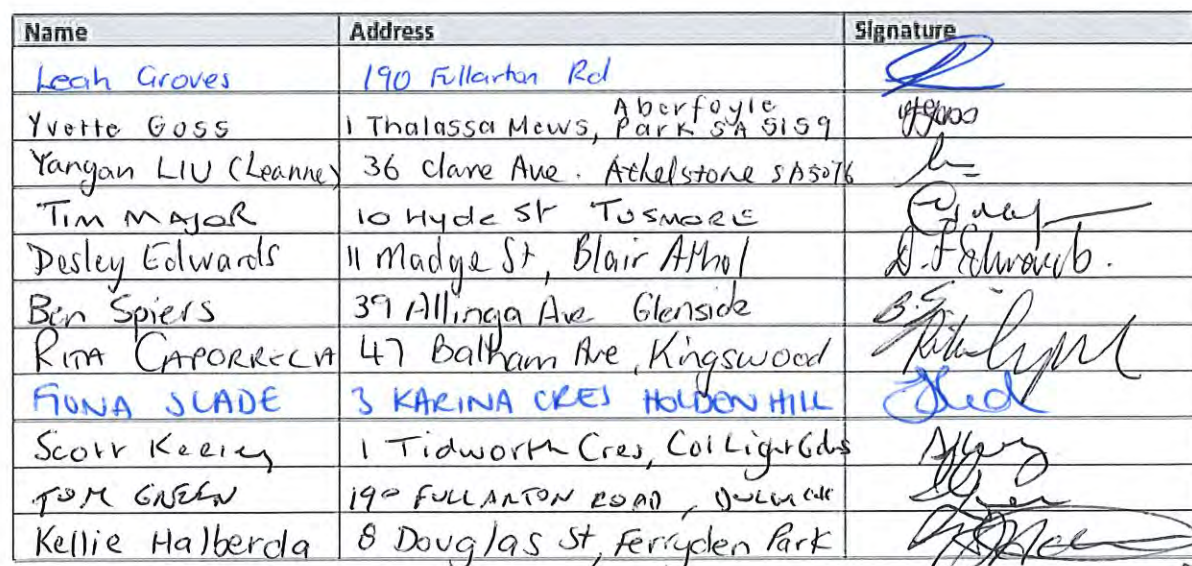 Name Address Signature
Leah Groves 190 Fullarton Rd
Yvette Goss 1 Thalassa Mews, Aberfoyle Park SA 5159
Yangan LIU (Leanne) 36 Clare Ave. Athelstone SA5076
TIM MAJOR 10 Hyde St TUSMORE
Desley Edwards 11 Madge St, Blair Athol D. F Edwards.
Ben Spiers 39 Allinga Ave Glenside B. S
RITA CAPORRECIA 47 Balham Ave, Kingswood
FIONA SLADE 3 KARINA CRES HOLDEN HILL
Scott Keeley 1 Tidworth Cres, Col Light Gdns
TOM GREEN 190 FULLARTON ROAD, DULWICH
Kellie Halberda 8 Douglas St, Ferryden Park